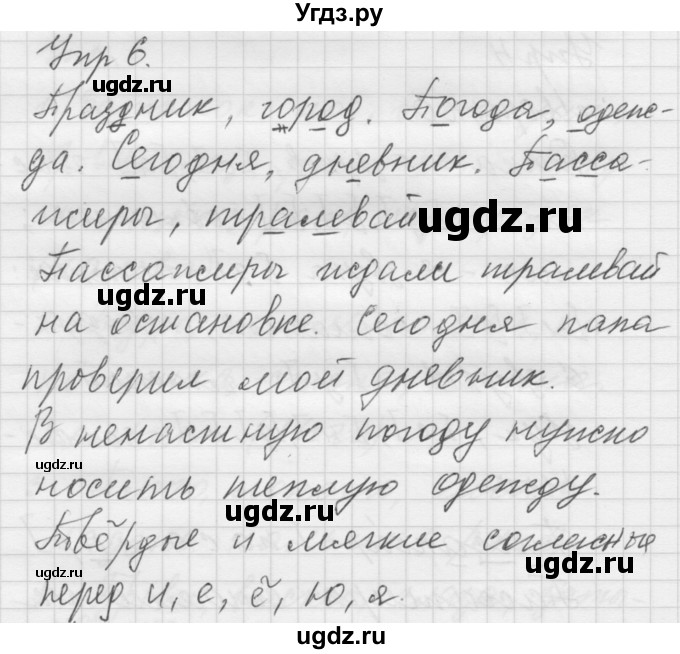 Угдз.ру
Упр 6.
Праздник, город. Погода, одеж-
да. Сегодня, дневник. Пасса-
жиры, трамвай
Пассажиры ждали трамвай
на остановке. Сегодня папа
проверил мой дневник.
В ненастную погоду нужно
носить теплую одежду.
Твёрдые и мягкие согласные
перед и, е, ё, ю, я.
ugdz.ru
ugdz.ru
ugdz.ru
ugdz.ru
ugdz.ru
ugdz.ru
ugdz.ru
ugdz.ru
ugdz.ru
ugdz.ru
ugdz.ru